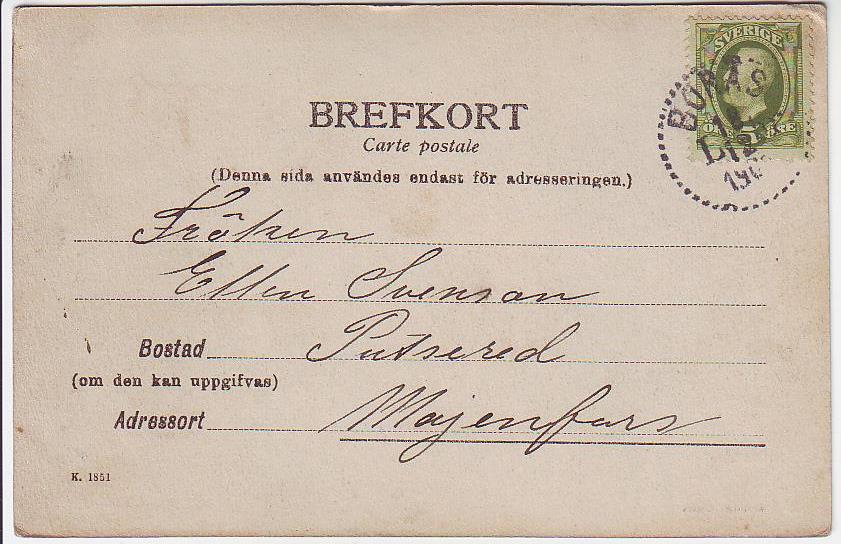 SVERIGE
BORÅS
5
ÖRE
BREFKORT
Carte postale
(Denna sida användes endast för adresseringen.)
Fröken
Ellen Svenson
Bostad Putsered
(om den kan uppgifvas)
Adressort Majenfors
K. 1851